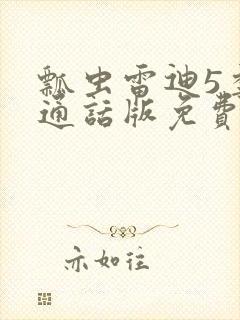 瓢虫雷迪5
通話版免費
亦如往